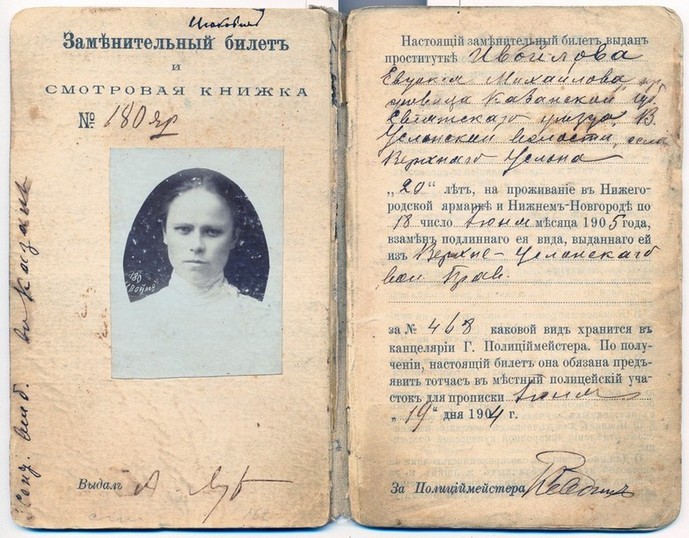 Замѣнительный билетъ
и
СМОТРОВАЯ КНИЖКА
№ 180 яр
180
Выдалъ
Настоящій замѣнительный билетъ выданъ
проституткѣ Ивойлова
Евдокія Михайлова
Казанской губ.
Свіяжскаго уѣзда, В.
Услонской волости, села
Верхняго Услона
„20“ лѣтъ, на проживаніе въ Нижего-
родской ярмаркѣ и Нижнемъ-Новгородѣ по
18 число іюня мѣсяца 1905 года,
взамѣнъ подлиннаго ея вида, выданнаго ей
изъ Верхне-Услонскаго
вол. Прав.
за № 468 каковой видъ хранится въ
канцеляріи Г. Полиціймейстера. По полу-
ченіи, настоящій билетъ она обязана предъ-
явить тотчасъ въ мѣстный полицейскій уча-
стокъ для прописки іюня
„19“ дня 1904 г.
За Полиціймейстера